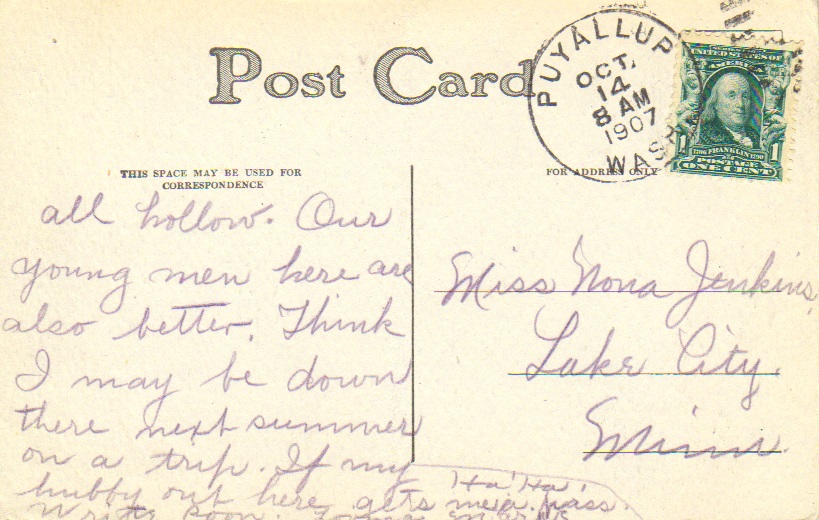 Post Card
PUYALLUP
OCT.
14
8 AM
1907
WASH
SERIES 1902
UNITED STATES OF
AMERICA
1706 FRANKLIN 1790
1 1
POSTAGE
ONE CENT
THIS SPACE MAY BE USED FOR
CORRESPONDENCE
FOR ADDRESS ONLY
all hollow. Our
young men here are
also better. Think
I may be down
there next summer
on a trip. If my
hubby out here gets me a pass.
Ha! Ha!
Write soon.
Miss Nona Jenkins,
Lake City,
Minn.